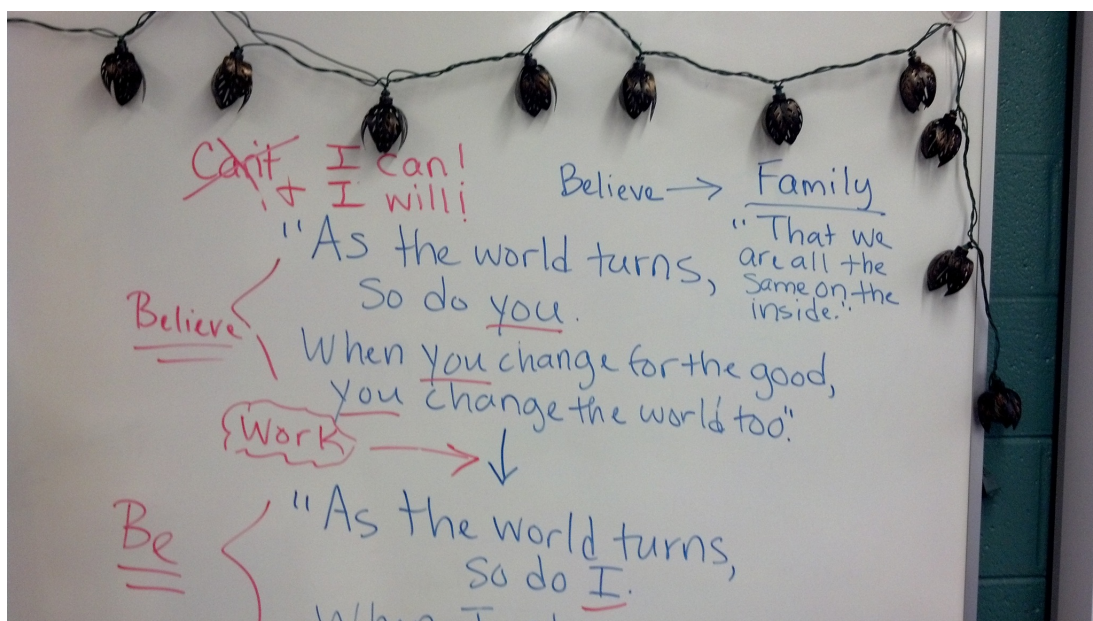 Can't, I can!
+ I will!
Believe → Family
"That we
are all the
same on the
inside."
"As the world turns,
so do you.
Believe
When you change for the good,
you change the world too."
Work
"As the world turns,
Be
so do I.
When I